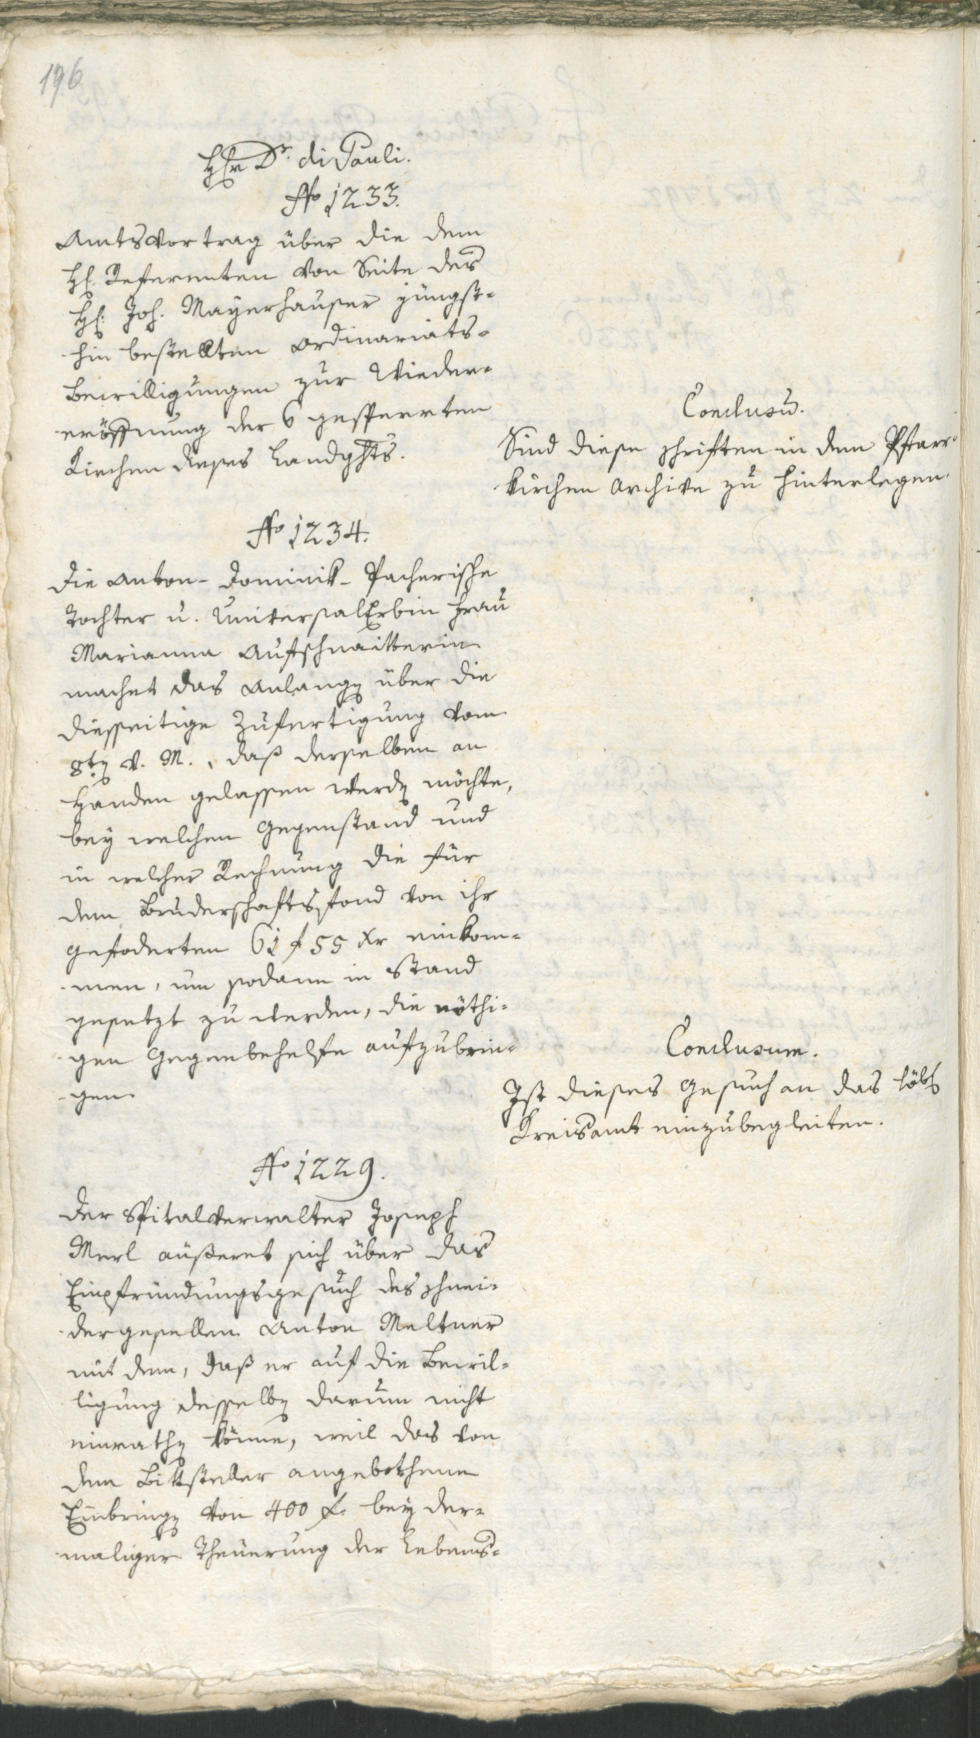 196
H Hr Dr. di Pauli.
No 1233.
Amtsvortrag über die dem
H. Referenten von Seite des
H. Joh. Mayerhauser jüngst-
hin bestellten Ordinariats-
bewilligungen zur Wieder-
eröffnung der 6 gesperrten
Kirchen dieses Landghts.
Conclusū.
Sind diese schriften in dem Pfarr-
kirchen Archive zu hinterlegen.
No 1234.
Die Anton-Dominik-Pacherische
Tochter u. UniversalErbin Frau
Marianna Aufschnaitterin
machet das Anlangen über die
diesseitige Zufertigung vom
8ten v. M., daß derselben an
Handen gelassen werden möchte,
bey welchen Gegenstand und
in welcher Rechnung die für
dem Bruderschaftsfond von ihr
geforderten 61 f 55 xr einkom-
men, um sodann in Stand
gesetzt zu werden, die nöthi-
gen Gegenbehelfe aufzubrin-
gen.
Conclusum.
Ist dieses Gesuch an das löbl.
Kreisamt einzubegleiten.
No 1229.
Der Spitalverwalter Joseph
Merl äußeret sich über das
Einpfründungsgesuch des schnei-
dergesellen Anton Meltner
mit dem, daß er auf die Bewil-
ligung desselben darum nicht
einrathen könne, weil das von
dem Bittsteller angebothene
Einbringen von 400 f. bey der-
maliger Theuerung der Lebens-